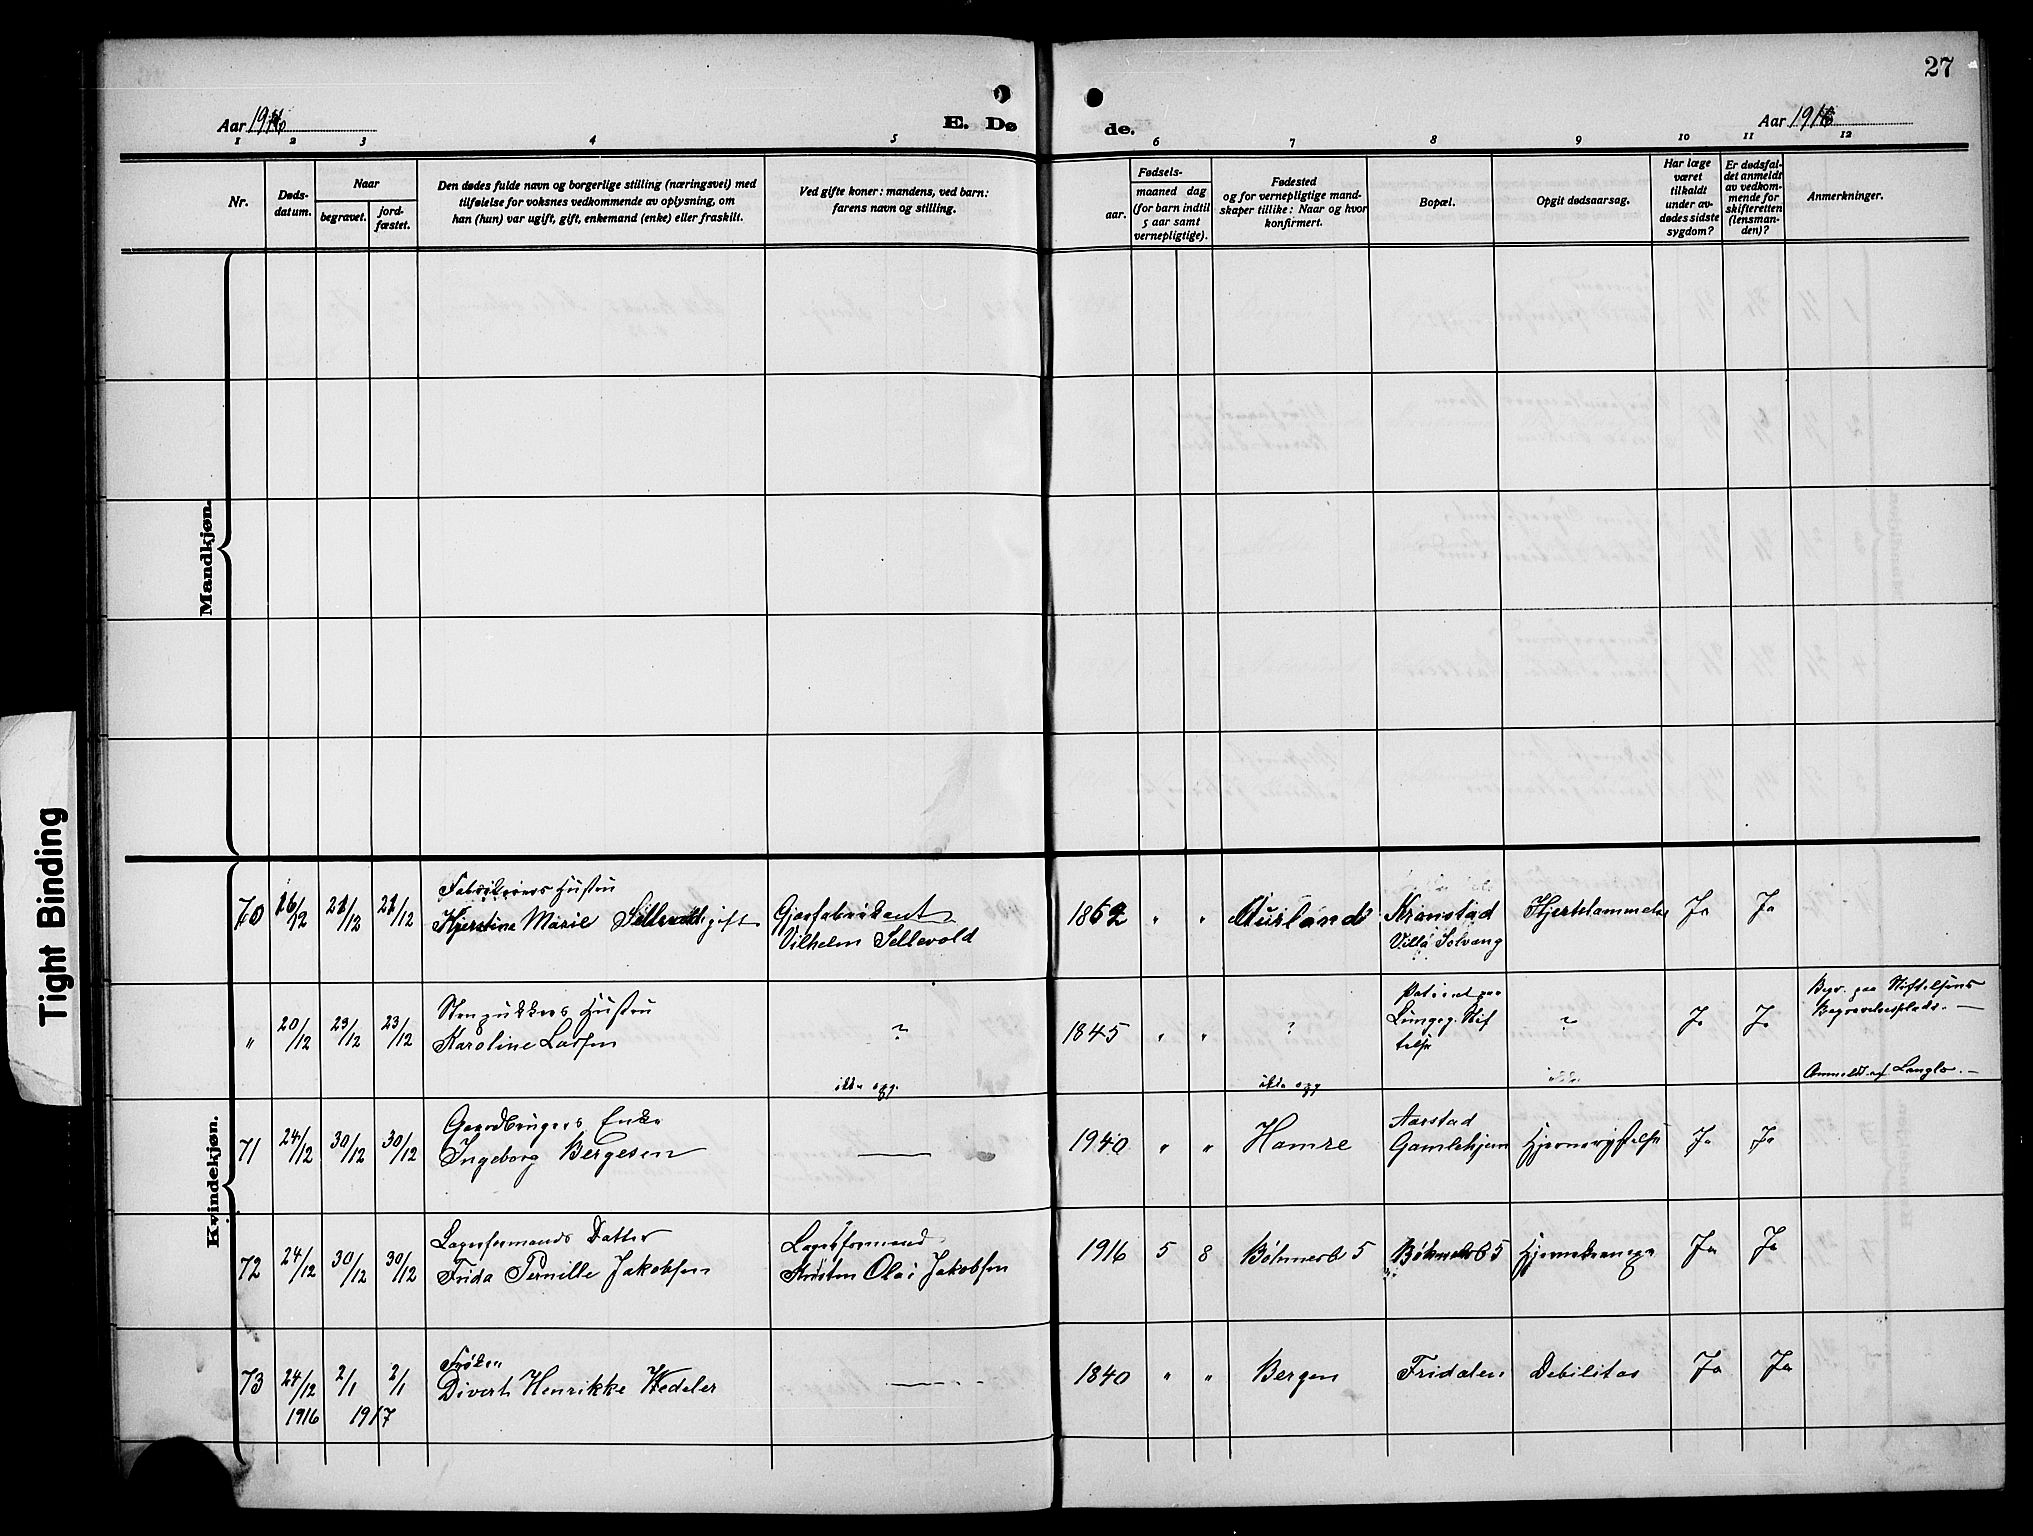 27
Aar 1916
E. Dø
de.
Aar 1916
1 2 3 4 5 6 7 8 9 10 11 12
Nr.
Døds-
datum.
Naar
begravet.
jord-
fæstet.
Den dødes fulde navn og borgerlige stilling (næringsvei) med
tilføielse for voksnes vedkommende av oplysning, om
han (hun) var ugift, gift, enkemand (enke) eller fraskilt.
Ved gifte koner: mandens, ved barn:
farens navn og stilling.
Fødsels-
aar.
maaned dag
(for barn indtil
5 aar samt
vernepligtige).
Fødested
og for vernepligtige mand-
skaper tillike: Naar og hvor
konfirmert.
Bopæl.
Opgit dødsaarsag.
Har læge
været
tilkaldt
under av-
dødes sidste
sygdom?
Er dødsfal-
det anmeldt
av vedkom-
mende for
skifteretten
(lensman-
den)?
Anmerkninger.
Mandkjøn.
Kvindekjøn.
Tight Binding
70 16/12 21/12 21/12
Hustru
Marie Sellevold gift
Vilhelm Sellevold
1862 " " Aurland
Kronstad
Villa Solvang
Ja Ja
" 20/12 23/12 23/12
Hustru
Karoline Larsen
?
ikke opg.
1845 " " ?
ikke opg
Patient paa
Lungeg. Stif
telse
?
ikke
Ja Ja
Begr. paa Stiftelsens
Begravelsesplads. —
Anmeldt af Langlo. —
71 24/12 30/12 30/12
Gaardbrugers Enke
Ingeborg Bergesen
—
1940 " " Hamre
Aarstad
Gamlehjem
Ja Ja
72 24/12 30/12 30/12
Lagerformands Datter
Frida Pernille Jakobsen
Lagerformand
Kristen Olai Jakobsen
1916 5 8 Bøhmerb 5
Bøhmerb 5
Ja Ja
73 24/12 2/1 2/1
1916 1917
Frøken
Divert Henrikke Wedeler
—
1840 " " Bergen
Fridalen
Debilitas
Ja Ja